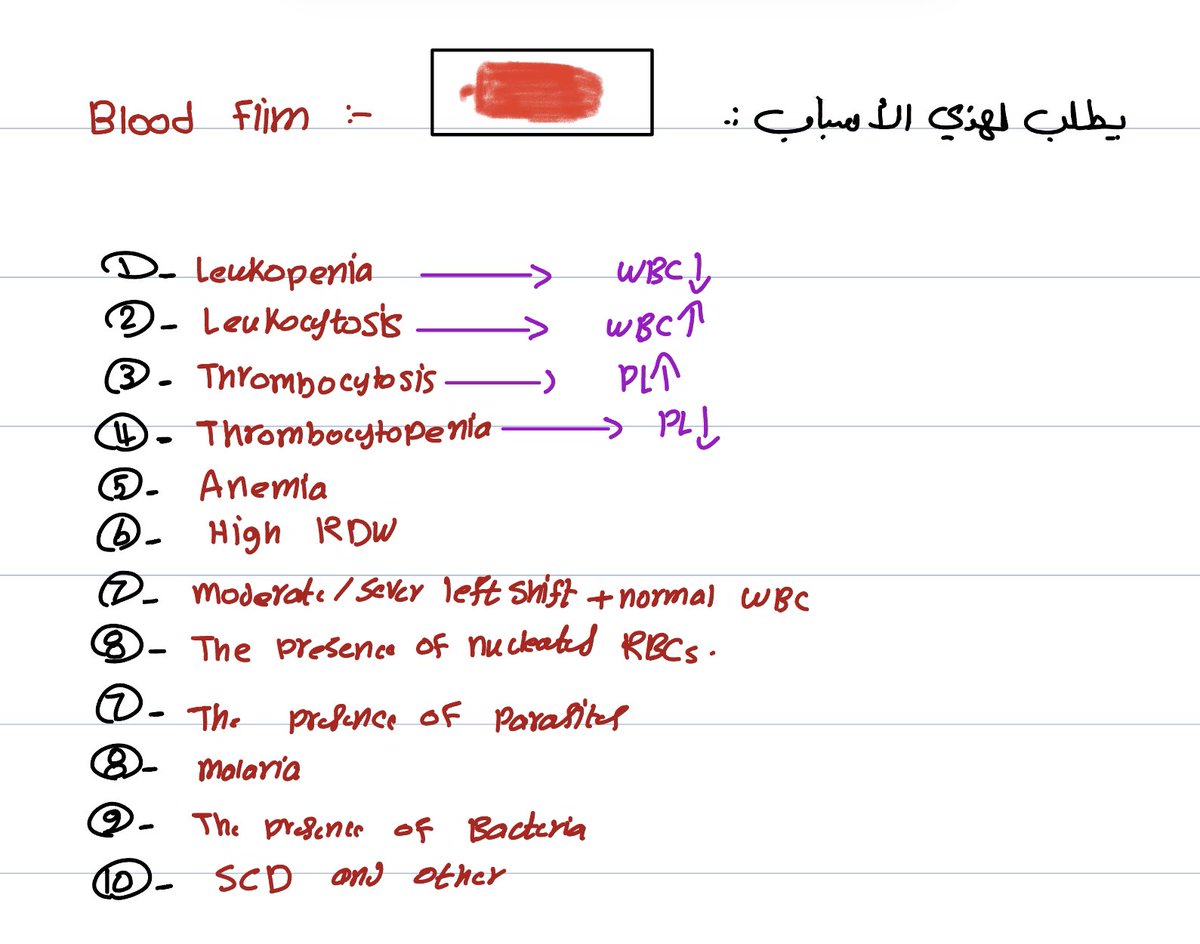 Blood Flim :- يطلب لهذي الأسباب :.
①- Leukopenia → WBC↓
②- Leukocytosis → WBC↑
③- Thrombocytosis → PL↑
④- Thrombocytopenia → PL↓
⑤- Anemia
⑥- High RDW
⑦- moderate/sever left shift + normal WBC
⑧- The presence of nucleated RBCs.
⑦- The presence of parasites
⑧- malaria
⑨- The presence of Bacteria
⑩- SCD and other